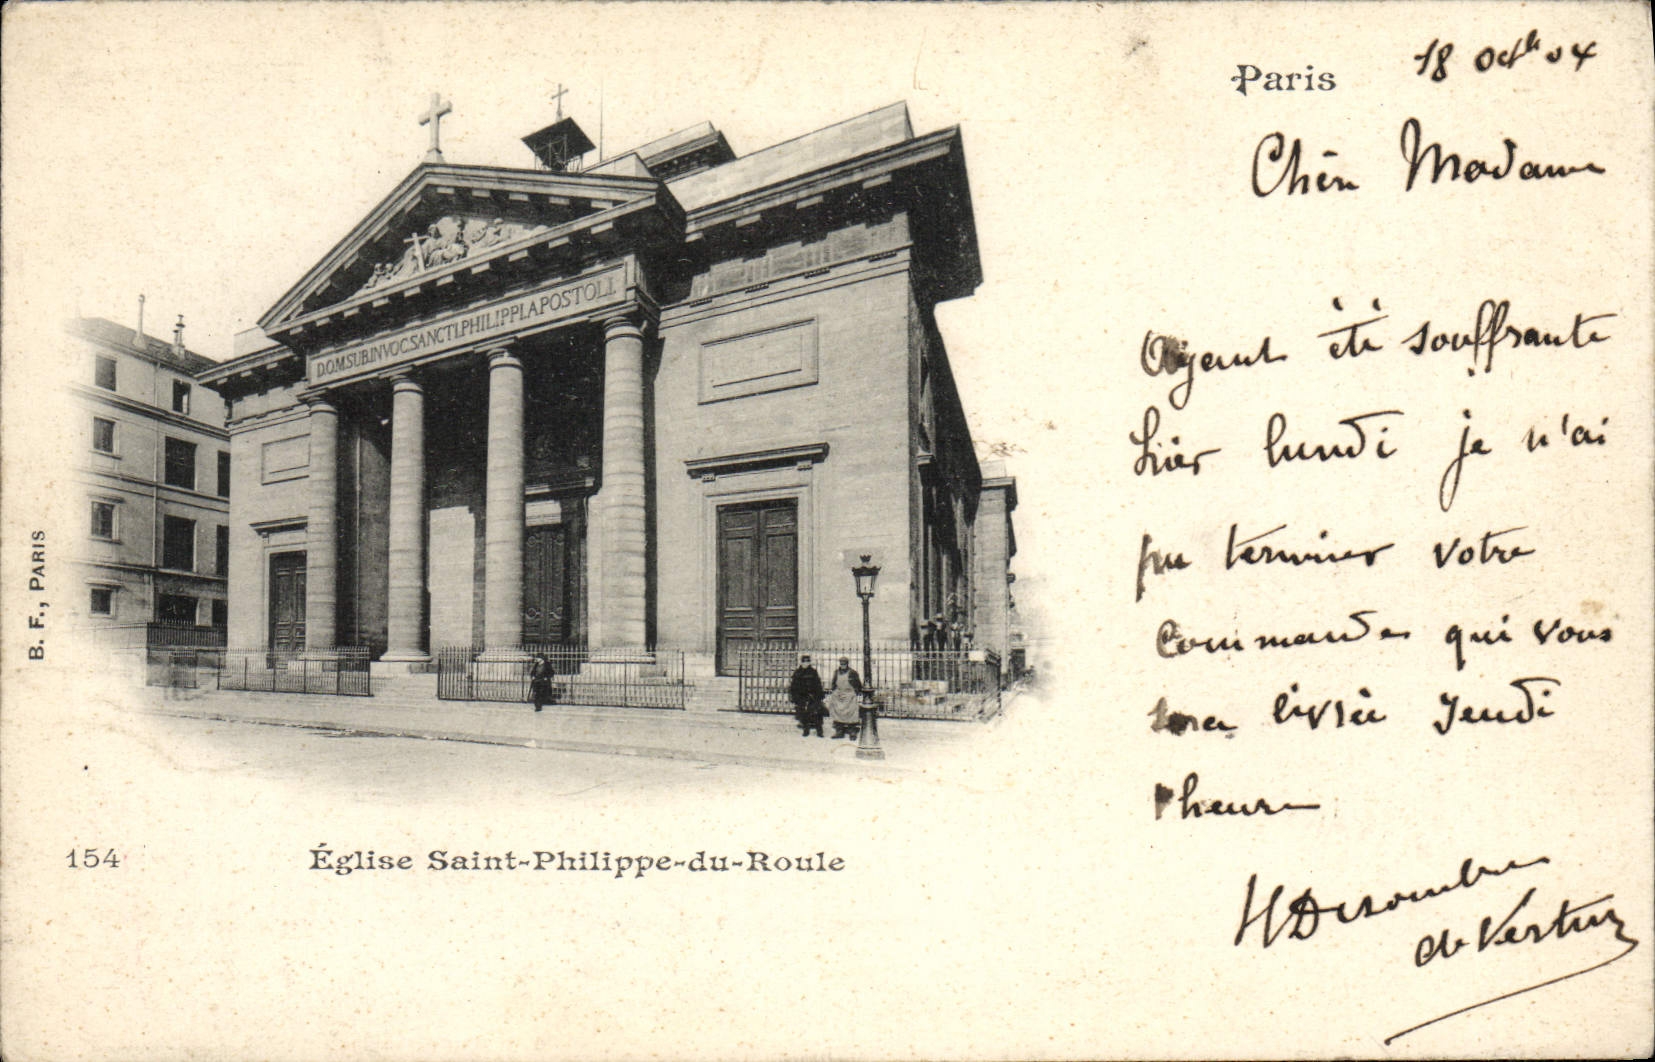 Paris 18 Octb 04
Chère Madame
Ayant été souffrante
hier lundi je n'ai
pu terminer votre
commande qui vous
sera livrée Jeudi
heure
H Desombre
de Vertus
D.O.M.SUB.INVOC.SANCTI.PHILIPPI.APOSTOLI.
B. F., PARIS
154 Église Saint-Philippe-du-Roule